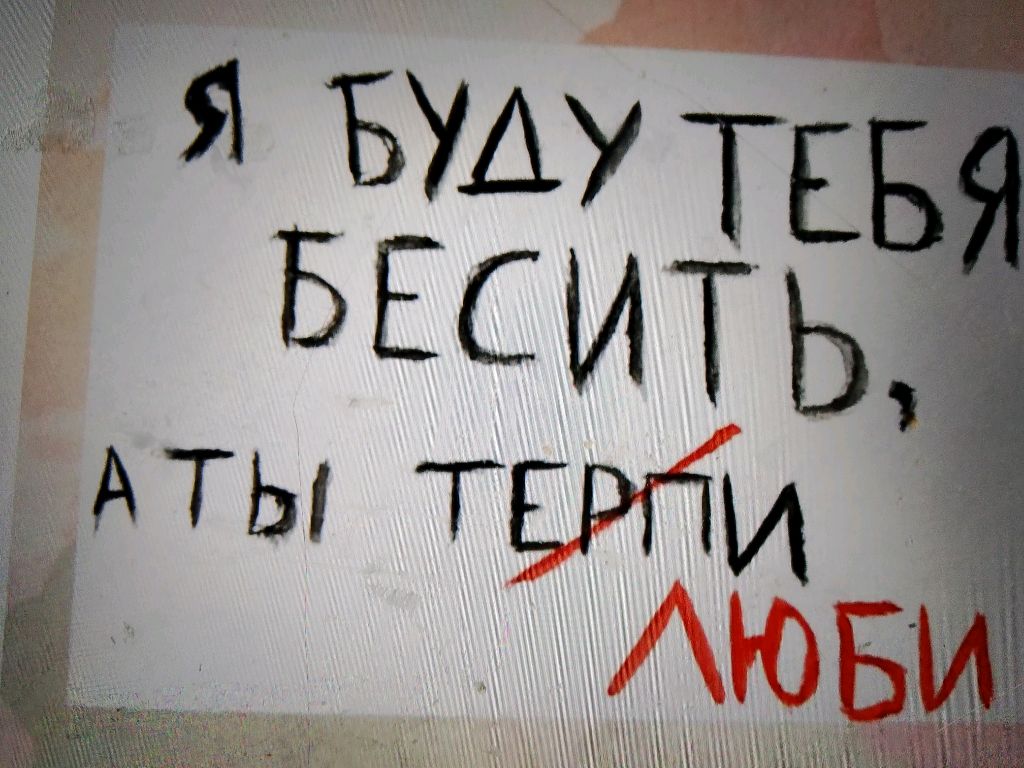 Я БУДУ ТЕБЯ
БЕСИТЬ,
А ТЫ ТЕРПИ
ЛЮБИ